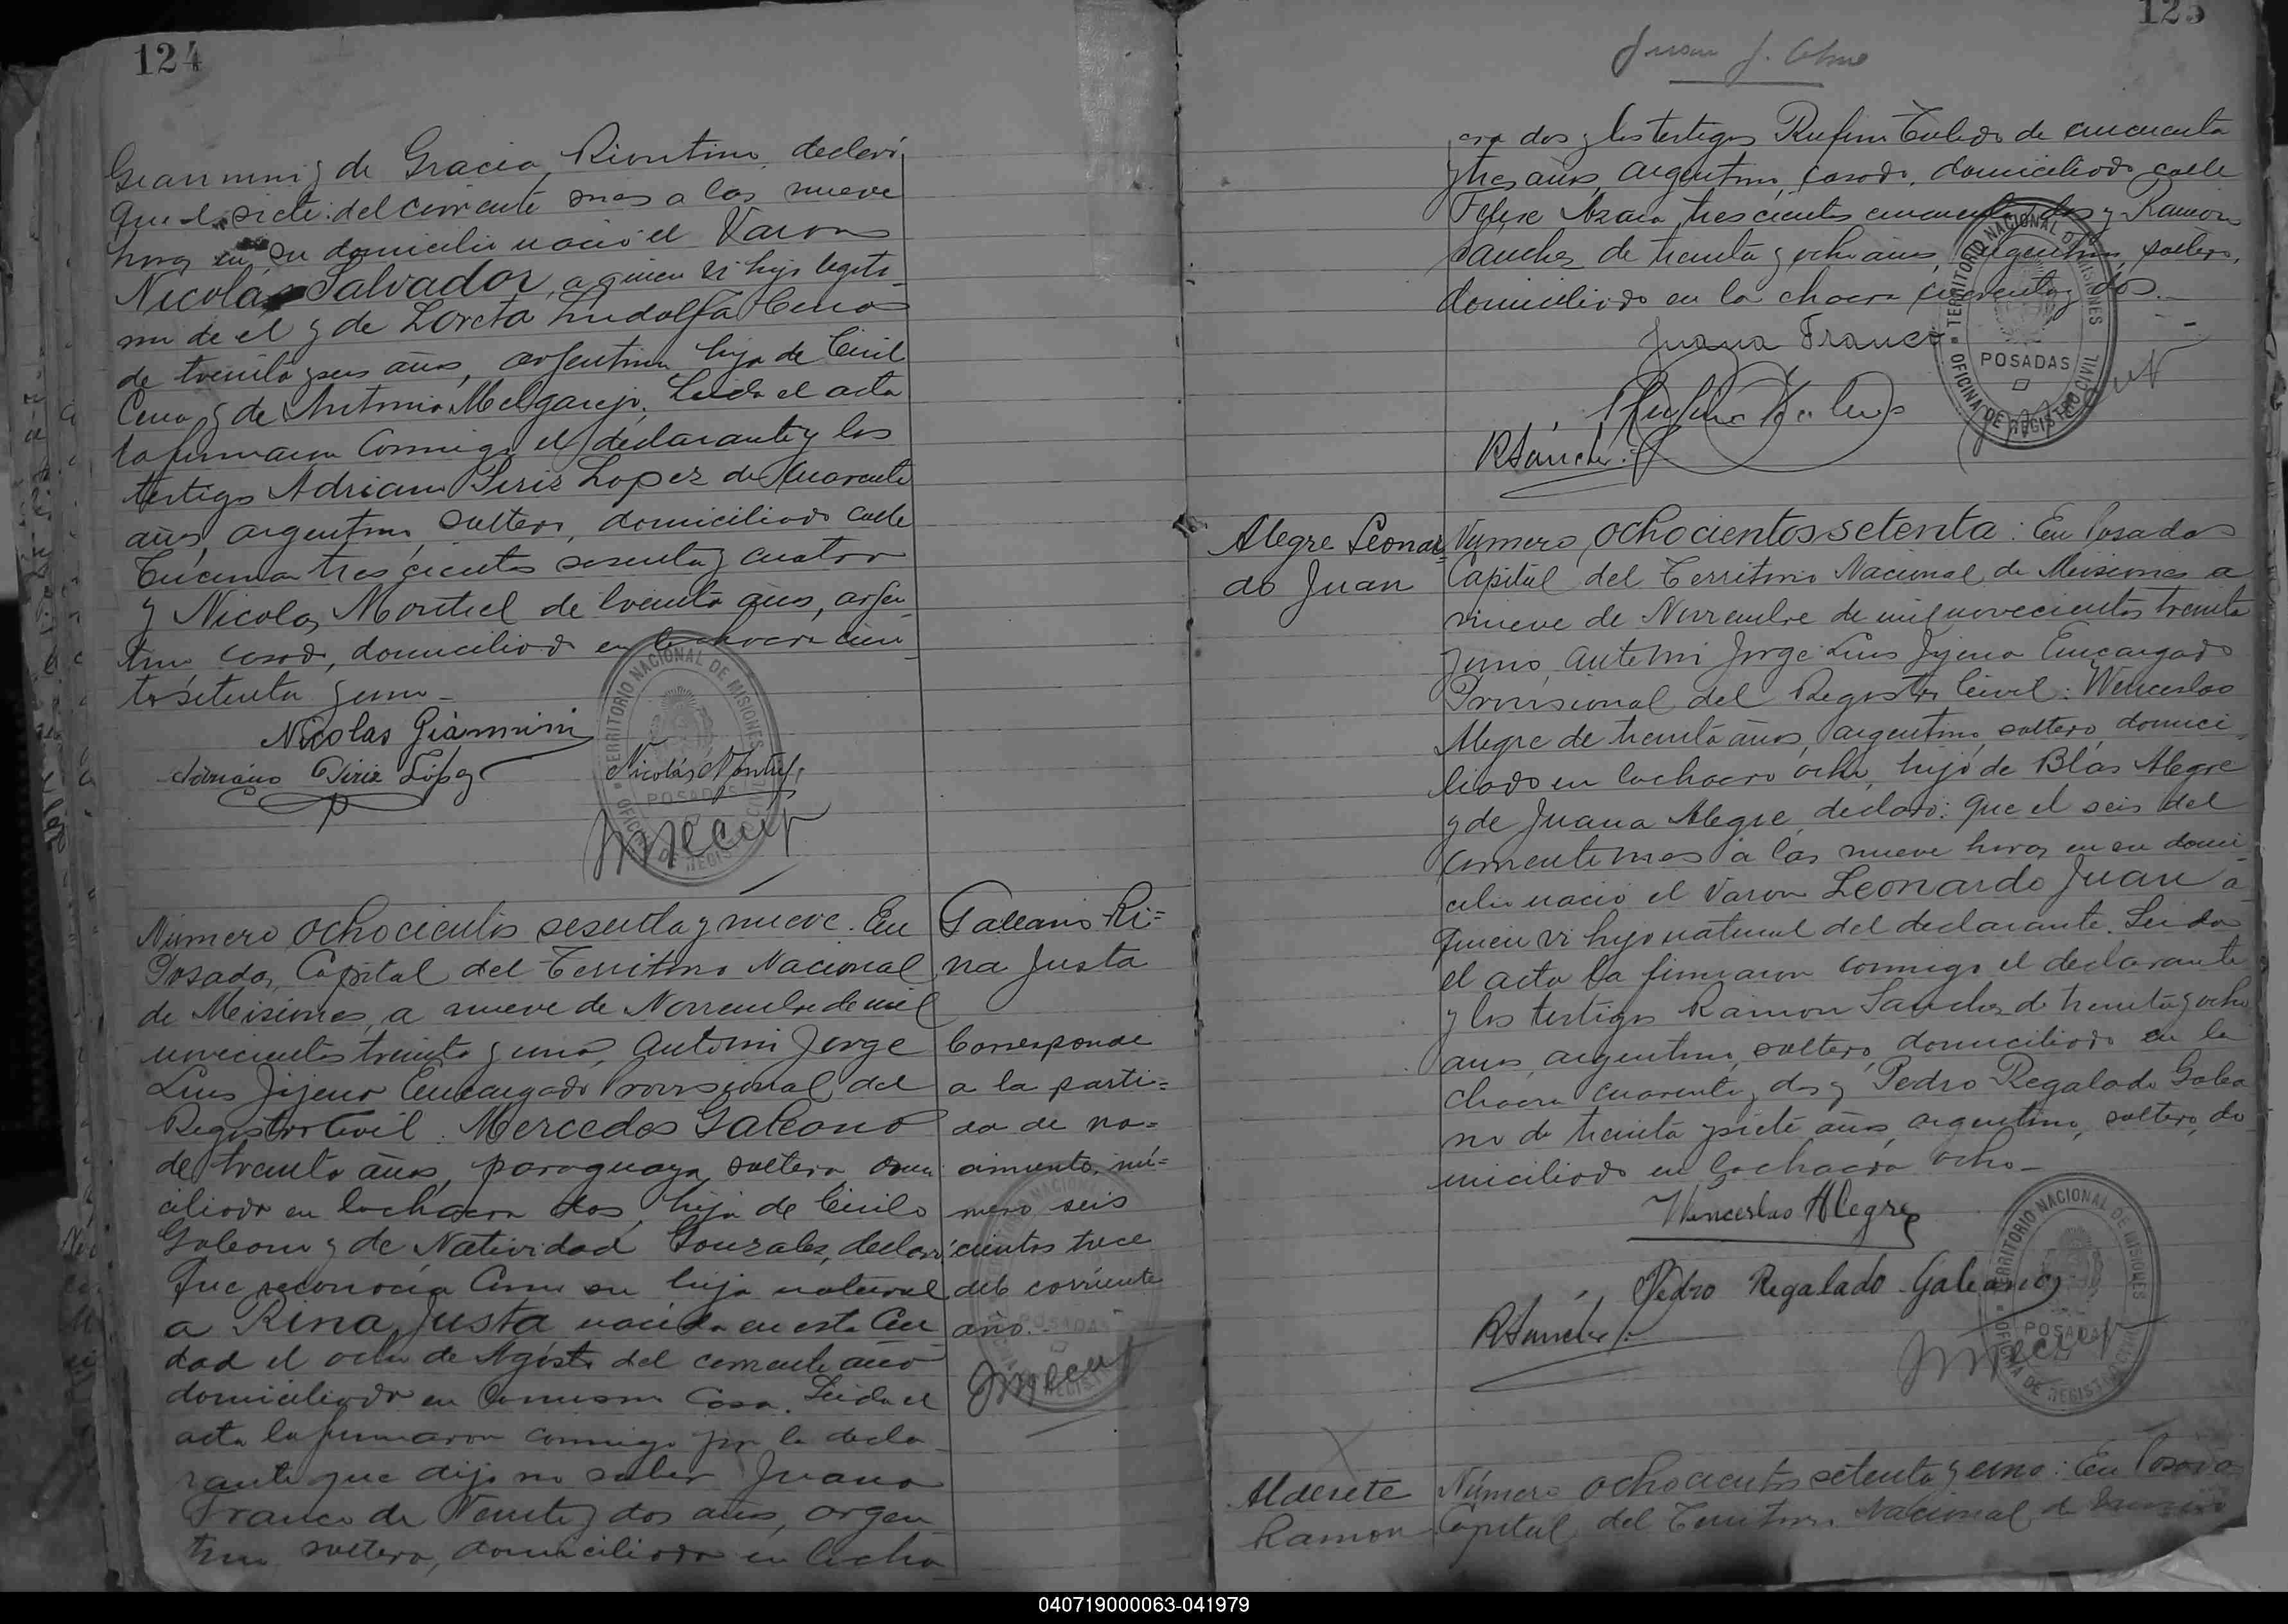 124
Giannini y de Gracia Riontino, declaró:
que el siete del corriente mes a las nueve
horas en su domicilio nació el Varon
Nicolás Salvador, a quien vi hijo legiti-
mo de el y de Loreta Ludolfa Cena
de treinta y seis años, argentina hija de Ciril
Cena y de Antonia Melgarejo. Leida el acta
la firmaron conmigo el declarante y los
testigos Adriano Piris Lopez de cuarenta
años, argentino, soltero, domiciliado calle
Tucuman tres cientos sesenta y cuatro
y Nicolas Montiel de treinta años, argen-
tino casado, domiciliado en la chacra cien-
to setenta y uno -
Nicolas Giannini
Adriano Piris López
Nicolás Montiel
TERRITORIO NACIONAL DE MISIONES
POSADAS
OFICINA DE REGISTRO CIVIL
Número ochocientos sesenta y nueve. En
Posadas, Capital del Territorio Nacional
de Misiones, a nueve de Noviembre de mil
novecientos treinta y uno, ante mi Jorge
Luis Jijena Encargado Provisional del
Registro Civil: Mercedes Galeano
de treinta años, paraguaya, soltera domi
ciliada en la chacra dos, hija de Cirilo
Galeano y de Natividad Gonzales, declaró:
Que reconocía como su hija natural
a Rina Justa, nacida en esta Ciu
dad el ocho de Agosto del corriente año
domiciliada en la misma casa. Leida el
acta la firmaron conmigo por la decla-
rante que dijo no saber Juana
Franco de Veinte y dos años, argen-
tina soltera, domiciliada en la cha
Galeano Ri=
na Justa
Corresponde
a la parti=
da de na=
cimiento, nú=
mero seis
cientos trece
del corriente
año.
TERRITORIO NACIONAL DE MISIONES
POSADAS
OFICINA DE REGISTRO CIVIL
125
Juan J.
cra dos y los testigos Rufino Toledo de cincuenta
y tres años, argentino, casado, domiciliado calle
Felix Azara tres cientos cincuenta y dos y Ramon
Sanchez de treinta y ocho años, argentino, soltero,
domiciliado en la chacra cuarenta y dos.-
Juana Franco
Rufino Toledo
RSánchez
TERRITORIO NACIONAL DE MISIONES
POSADAS
OFICINA DE REGISTRO CIVIL
Alegre Leonar-
do Juan
Número ochocientos setenta: En Posadas
Capital del Territorio Nacional de Misiones a
nueve de Noviembre de mil novecientos treinta
y uno, ante mi Jorge Luis Jijena Encargado
Provisional del Registro Civil: Wenceslao
Alegre de treinta años, argentino, soltero, domici-
liado en la chacra ocho, hijo de Blás Alegre
y de Juana Alegre, declaró: Que el seis del
corriente mes a las nueve horas en su domi-
cilio nació el Varon Leonardo Juan a
quien vi hijo natural del declarante. Leida
el acta la firmaron conmigo el declarante
y los testigos Ramon Sanchez de treinta y ocho
años, argentino, soltero, domiciliado en la
chacra cuarenta y dos y Pedro Regalado Galea
no de treinta y siete años, argentino, soltero, do
miciliado en la chacra ocho -
Wenceslao Alegre
Pedro Regalado Galeano
RSánchez
TERRITORIO NACIONAL DE MISIONES
POSADAS
OFICINA DE REGISTRO CIVIL
Alderete
Ramon
Número ochocientos setenta y uno: En Posadas
Capital del Territorio Nacional de Misiones
040719000063-041979